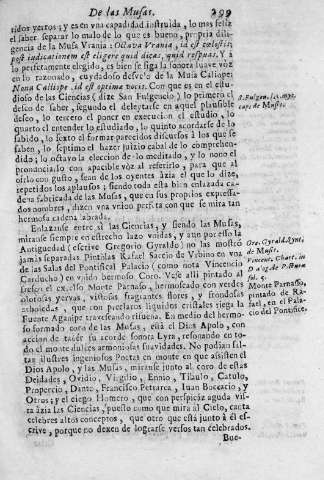 De las Musas. 299
zidos yertos; y es en vna capacidad instruida, lo mas feliz
el saber separar lo malo de lo que es bueno, propria dili-
gencia de la Musa Vrania: Octava Vrania, id est cœlestis;
post indicationem est eligere quid dicas, quid respuas. Y à
lo perfectamente elegido, es bien se siga la sonora suave vòz
en lo razonado, cuydadoso desvelo de la Musa Caliope:
Nona Calliope id est optima vocis. Con que es en el estu-
dioso de las Ciencias (dize San Fulgencio) lo primero el
desco de saber, segundo el deleytarse en aquel plausible
deseo, lo tercero el poner en execucion el estudio, lo
quarto el entender lo estudiado, lo quinto acordarse de lo
sabido, lo sexto el formar parecidos discursos à los que se
saben, lo septimo el hazer juizio cabal de lo comprehen-
dido; lo octavo la eleccion de lo meditado, y lo nono el
pronunciarlo con apacible vòz al referirlo, para que al
oirlo con gusto, sean de los oyentes àzia el que lo dize,
repetidos los aplausos; siendo toda esta bien enlazada ca-
dena fabricada de las Musas, que en sus proprios expressa-
dos nombres, dizen vna vnion perfeta con que se mira tan
hermosa cadena labrada.
S. Fulgen. lib. myt.
cap. de Musis.
Enlazanse entre si las Ciencias, y siendo las Musas,
miranse siempre en estrecho lazo vnidas, y aun por esso la
Antiguedad (escrive Gregorio Gyraldo) no las mostrò
jamàs separadas Pintòlas Rafael Sarcio de Vrbino en vna
de las Salas del Pontifical Palacio (como nota Vincencio
Carducho) en vnido hermoso Coro. Vese alli pintado al
fresco el excelso Monte Parnaso, hermoseado con verdes
olotosas yervas, vistosas fragrantes flores, y frondosas
arboledas, que con preclaros liquidos cristales riega la
Fuente Aganipe travesseando risueña. En medio del hermo-
so formado coro de las Musas, està el Dios Apolo, con
accion de tañer su acorde sonora Lyra, resonando en to-
do el monte dulces armoniosas suavidades. No podian fal-
tar ilustres ingeniosos Poetas en monte en que assisten el
Dios Apolo, y las Musas, miranse junto al coro de estas
Deidades, Ovidio, Virgilio, Ennio, Tibulo, Catulo,
Propercio, Dante, Francisco Petrarca, Iuan Bocacio, y
Otros; y el ciego Homero, que con perspicàz aguda vis-
ta àzia las Ciencias, puesto como que mira al Cielo, canta
celebres altos conceptos, que otro que està junto à èl es-
crive, porque no dexen de lograrse versos tan celebrados.
Greg. Gyrald. Synt.
de Musis.
Vincent. Chart. in
Dialog. de Pictura
fol. 5.
Monte Parnasso,
pintado de Ra-
fael, en el Pala-
cio del Pontifice.
Bue-